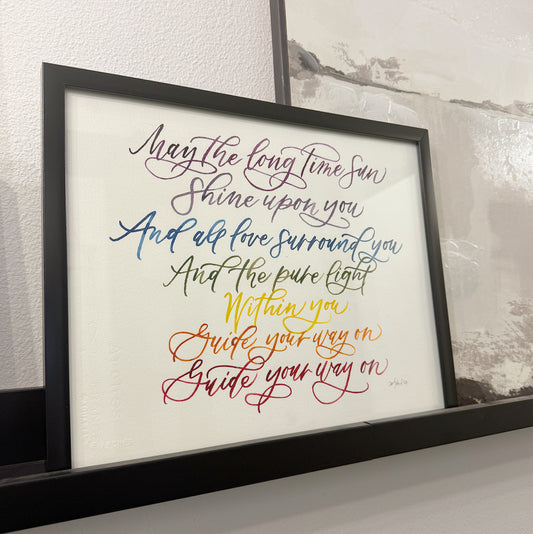 May the long time sun
Shine upon you
And all love surround you
And the pure light
Within you
Guide your way on
Guide your way on